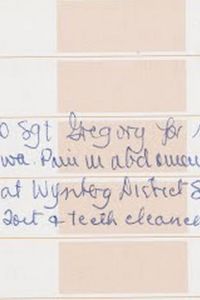 Sgt Gregory for
Pain in abdomen
at Wynberg District S
& teeth cleane